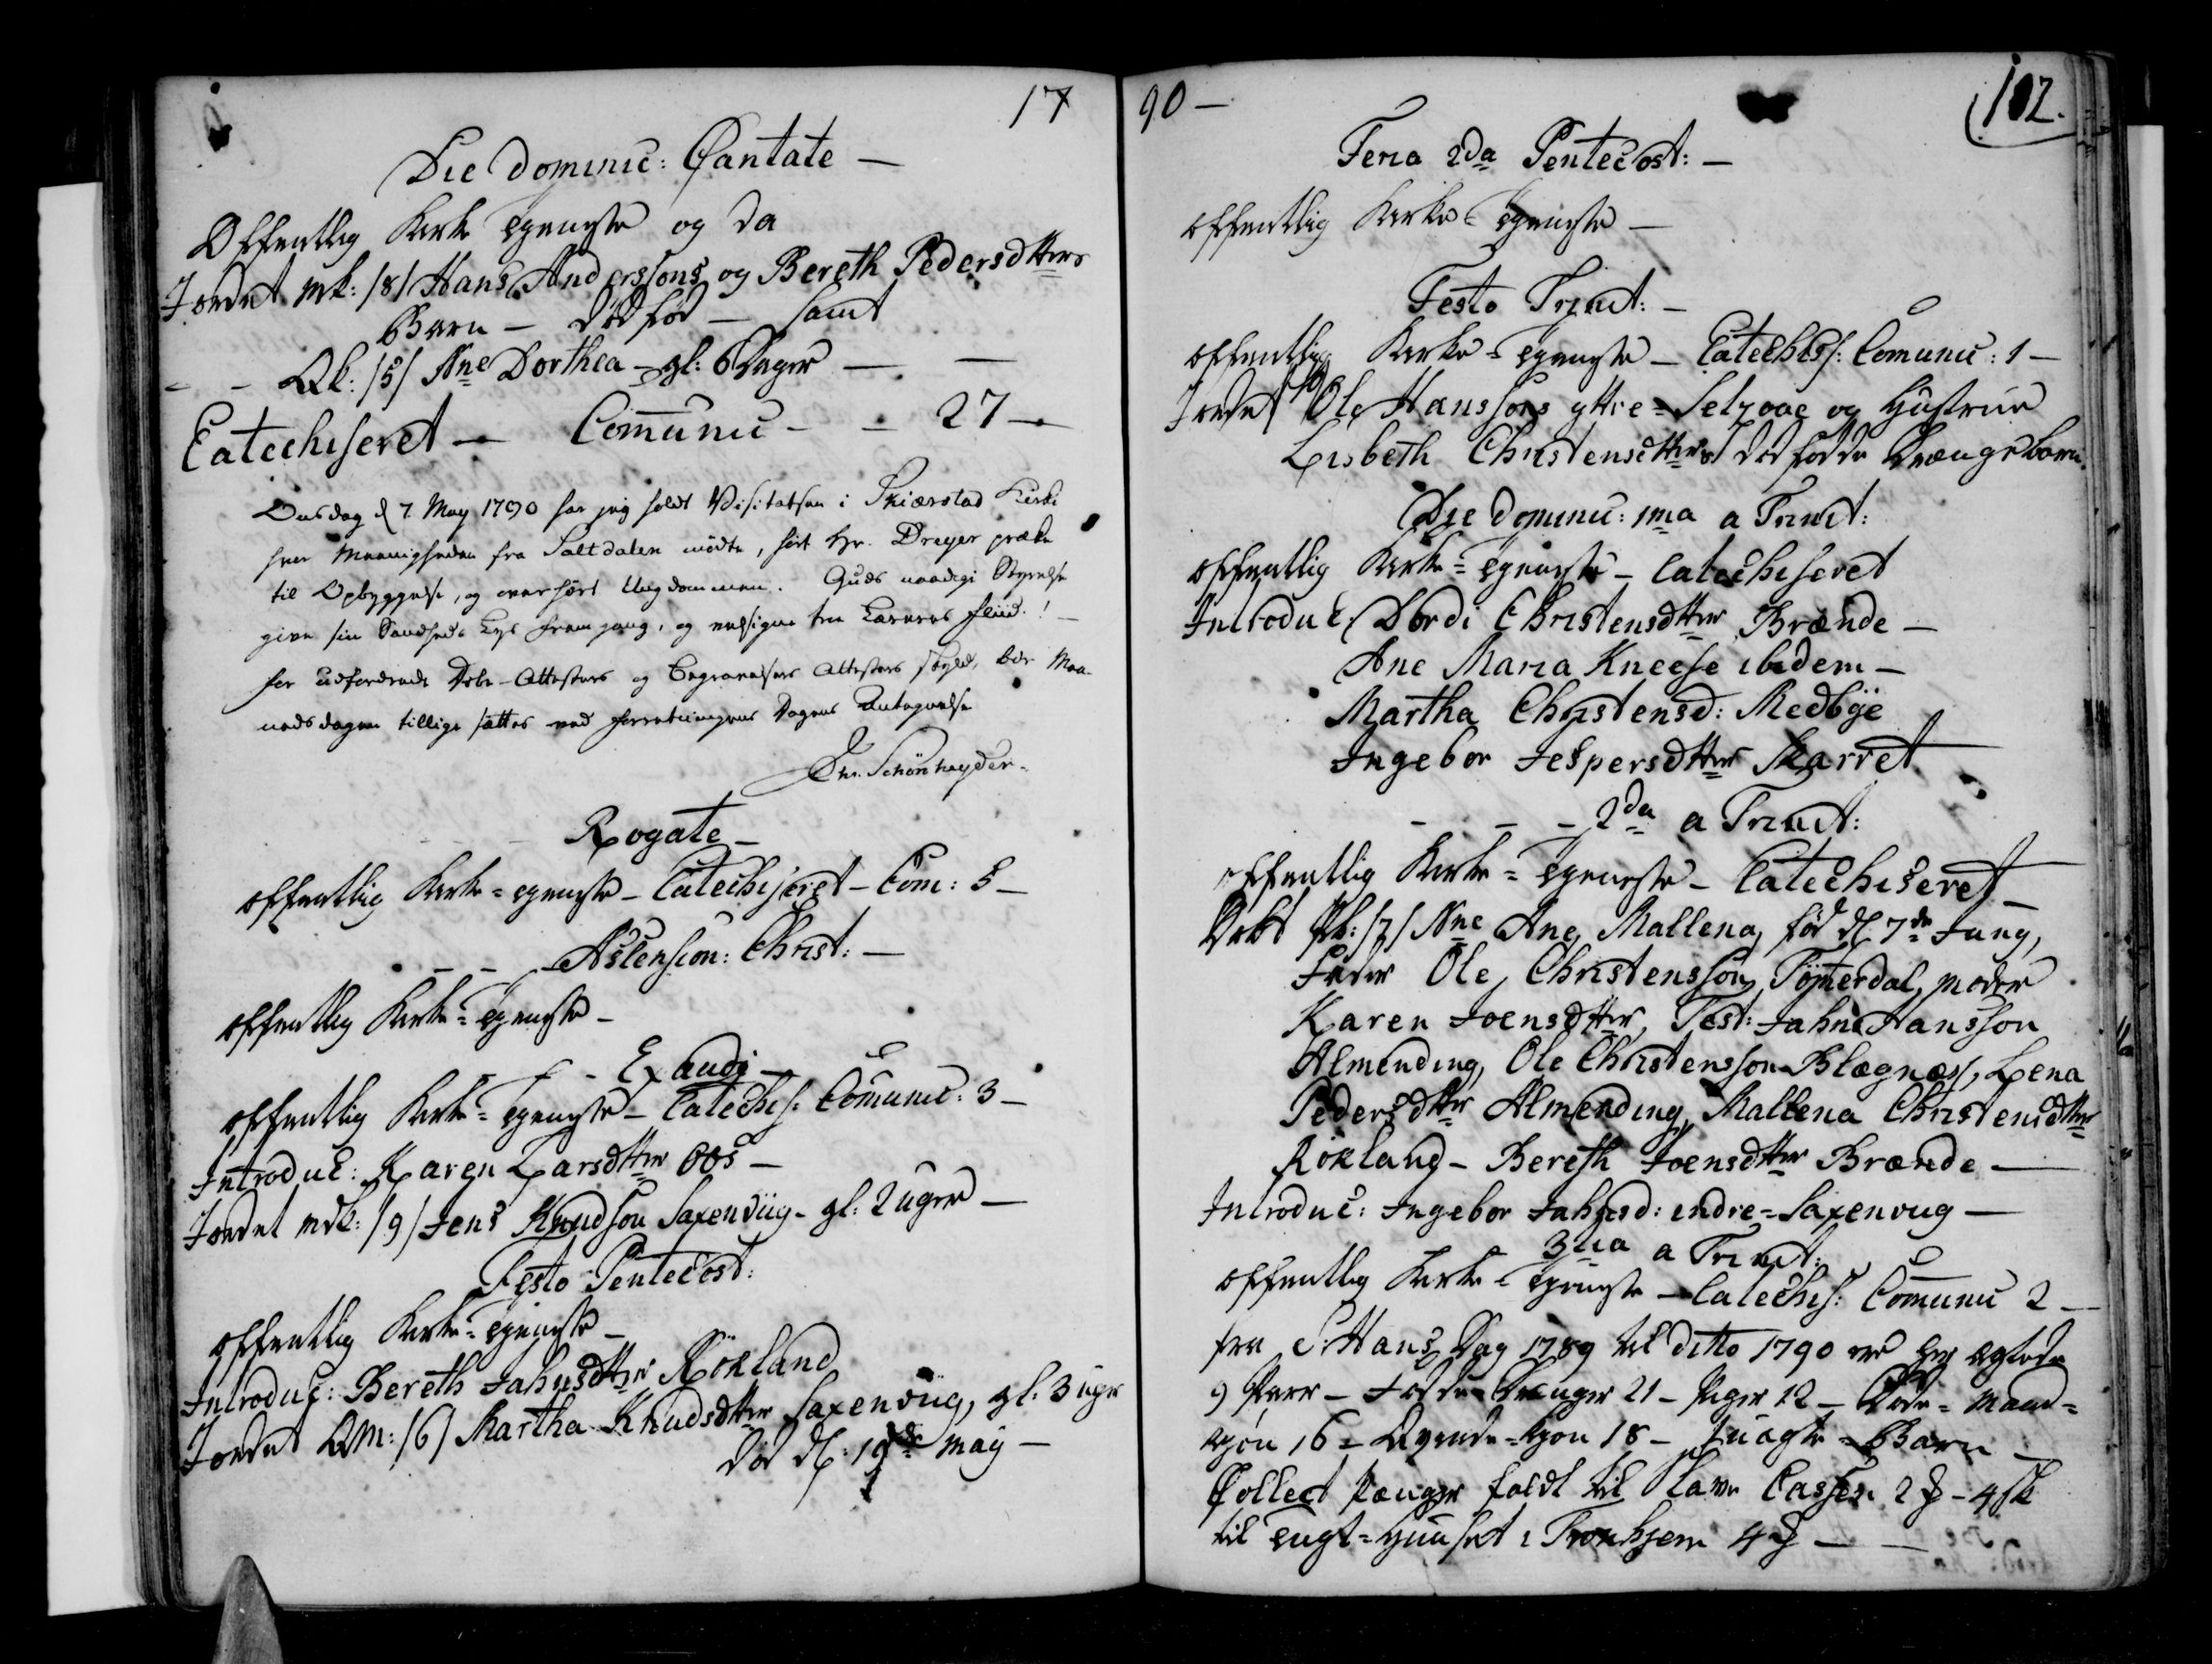 17
Die Dominic: Cantate —
Offentlig Kirke Tieneste og da
Jordet Mk: /8/ Hans Anderssons og Bereth Pedersdtters
Barn — dødfød — samt
- - Qk: /5/ Nne Dorthea — gl: 6 Dager —
Catechiseret — Com̄unic — - 27 —
Onsdag d 7 May 1790 har jeg holdt Visitatsen i Skiærstad Kirke
hvor Menigheden fra Saltdalen mødte, hørt Hr. Dreyer præke
til Opbyggelse, og overhørt Ungdommen. Guds naadige Styrelse
give sin Sandheds Lys Fremgang, og velsigne troe Læreres Fliid! —
For udfordrende Døbe-Attesters og Begravelses Attesters skyld, bør Maa-
nedsdagen tillige sættes ved Forretningens Dagens Antegnelse
Chr. Schønheyder.
- - - Rogate —
offentlig Kirke = Tieneste — Catechiseret — Com: 5 —
- - - Ascension: Christ: —
offentlig Kirke = Tieneste —
- - - Exaudi —
offentlig Kirke = Tieneste — Catechis: Comunic: 3 —
Introduc: Karen Larsdtter Oos —
Jordet Mk: /9/ Jens Knudson Saxenviig — gl: 2 uger —
Festo Pentecost:
offentlig Kirke = Tieneste —
Introduc: Bereth Jahnsdtter Rökland
Jordet QM: /6/ Martha Knudsdtter Saxenviig, gl: 3 uger
død d: 19de May —
90 —
102.
Feria 2da Pentecost: —
offentlig Kirke = Tieneste —
Festo Trinit: —
offentlig Kirke = Tieneste — Catechis: Comunic: 1 —
Jordet Ole Hanssons yttre = Selzoae og Hustrue
Lisbeth Christensdtters dødfødde Drængebarn.
Die Dominic: 1ma a Trinit:
offentlig Kirke = Tieneste — Catechiseret
Introduc: Dordi Christensdtter Brænde —
Ane Maria Kneese ibidem —
Martha Christensd: Medbÿe
Ingebor Jespersdtter Skarret
- - - 2da a Trinit:
offentlig Kirke = Tieneste — Catechiseret —
Døbt Pk: /7/ Nne Ane Mallena, fød d 7de Juny,
Fader Ole Christensson Tømerdal, moder
Karen Joensdtter, Test: Jahn Hansson
Almending, Ole Christensson Blægnæs, Lena
Pedersdtter Almending, Mallena Christensdtter
Rökland — Bereth Joensdtter Brænde —
Introduc: Ingebor Jahnsd: indre = Saxenvug —
3tia a Trinit:
offentlig Kirke = Tieneste — Catechis: Com̄unic 2 —
fra S: Hans Dag 1789 til ditto 1790 ere her ægtede
9 Parr — Fødde Drenger 21 — Piger 12 — Døde = Mand =
kjøn 16 = Qvinde = kjøn 18 — Uægte = Barn —
Collect Penger faldt til Slave Cassen 2 — 4 sk
til Tugt = Huuset i Tronhjem 4 —